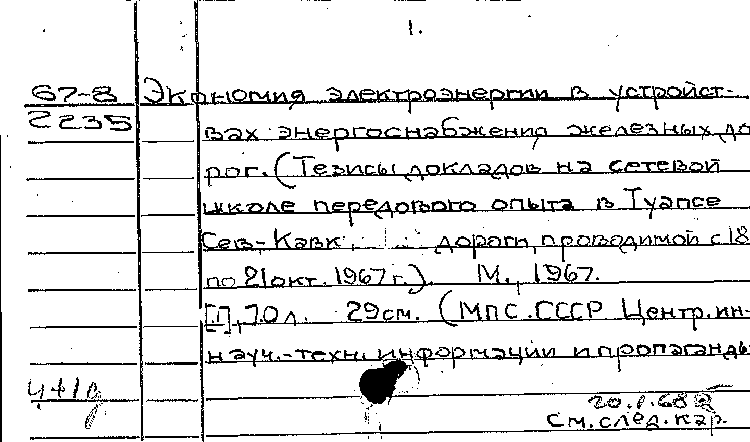 1.
67-8 Экономия электроэнергии в устройст-
2235 вах энергоснабжения железных до
рог. (Тезисы докладов на сетевой
школе передового опыта в Туапсе
Сев-Кавк. дороги, проводимой с 18
по 21 окт. 1967 г.). М., 1967.
[1], 70 л. 29 см. (МПС СССР Центр. ин-
науч.-техн. информации и пропаганды
20.1.68
См. след. кар.